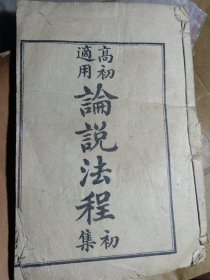 高初適用
論說法程
初集